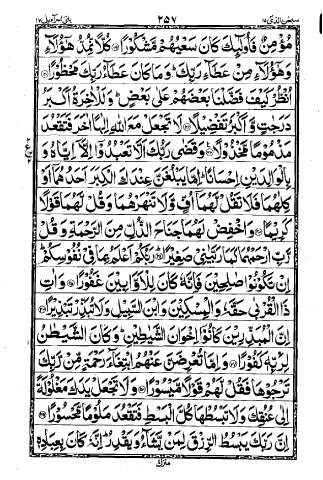 سبحن الذی ١٥ ٣٥٧ بنی اسرآءیل ١٧
مُؤْمِنٌ فَأُولَٰئِكَ كَانَ سَعْيُهُمْ مَشْكُورًا ⑲ كُلًّا نُمِدُّ هَٰؤُلَاءِ
وَهَٰؤُلَاءِ مِنْ عَطَاءِ رَبِّكَ ؕ وَمَا كَانَ عَطَاءُ رَبِّكَ مَحْظُورًا ⑳
اُنْظُرْ كَيْفَ فَضَّلْنَا بَعْضَهُمْ عَلٰى بَعْضٍ ؕ وَلَلْاٰخِرَةُ اَكْبَرُ
دَرَجٰتٍ وَّاَكْبَرُ تَفْضِيْلًا ㉑ لَا تَجْعَلْ مَعَ اللّٰهِ اِلٰهًا اٰخَرَ فَتَقْعُدَ
مَذْمُوْمًا مَّخْذُوْلًا ㉒ وَقَضٰى رَبُّكَ اَلَّا تَعْبُدُوْۤا اِلَّاۤ اِيَّاهُ وَ
بِالْوَالِدَيْنِ اِحْسَانًا ؕ اِمَّا يَبْلُغَنَّ عِنْدَكَ الْكِبَرَ اَحَدُهُمَاۤ اَوْ
كِلٰهُمَا فَلَا تَقُلْ لَّهُمَاۤ اُفٍّ وَّلَا تَنْهَرْهُمَا وَقُلْ لَّهُمَا قَوْلًا
كَرِيْمًا ㉓ وَاخْفِضْ لَهُمَا جَنَاحَ الذُّلِّ مِنَ الرَّحْمَةِ وَقُلْ
رَّبِّ ارْحَمْهُمَا كَمَا رَبَّيٰنِيْ صَغِيْرًا ㉔ رَبُّكُمْ اَعْلَمُ بِمَا فِيْ نُفُوْسِكُمْ ؕ
اِنْ تَكُوْنُوْا صٰلِحِيْنَ فَاِنَّهٗ كَانَ لِلْاَوَّابِيْنَ غَفُوْرًا ㉕ وَاٰتِ
ذَا الْقُرْبٰى حَقَّهٗ وَالْمِسْكِيْنَ وَابْنَ السَّبِيْلِ وَلَا تُبَذِّرْ تَبْذِيْرًا ㉖
اِنَّ الْمُبَذِّرِيْنَ كَانُوْۤا اِخْوَانَ الشَّيٰطِيْنِ ؕ وَكَانَ الشَّيْطٰنُ
لِرَبِّهٖ كَفُوْرًا ㉗ وَاِمَّا تُعْرِضَنَّ عَنْهُمُ ابْتِغَآءَ رَحْمَةٍ مِّنْ رَّبِّكَ
تَرْجُوْهَا فَقُلْ لَّهُمْ قَوْلًا مَّيْسُوْرًا ㉘ وَلَا تَجْعَلْ يَدَكَ مَغْلُوْلَةً
اِلٰى عُنُقِكَ وَلَا تَبْسُطْهَا كُلَّ الْبَسْطِ فَتَقْعُدَ مَلُوْمًا مَّحْسُوْرًا ㉙
اِنَّ رَبَّكَ يَبْسُطُ الرِّزْقَ لِمَنْ يَّشَآءُ وَيَقْدِرُ ؕ اِنَّهٗ كَانَ بِعِبَادِهٖ
منزل ٤